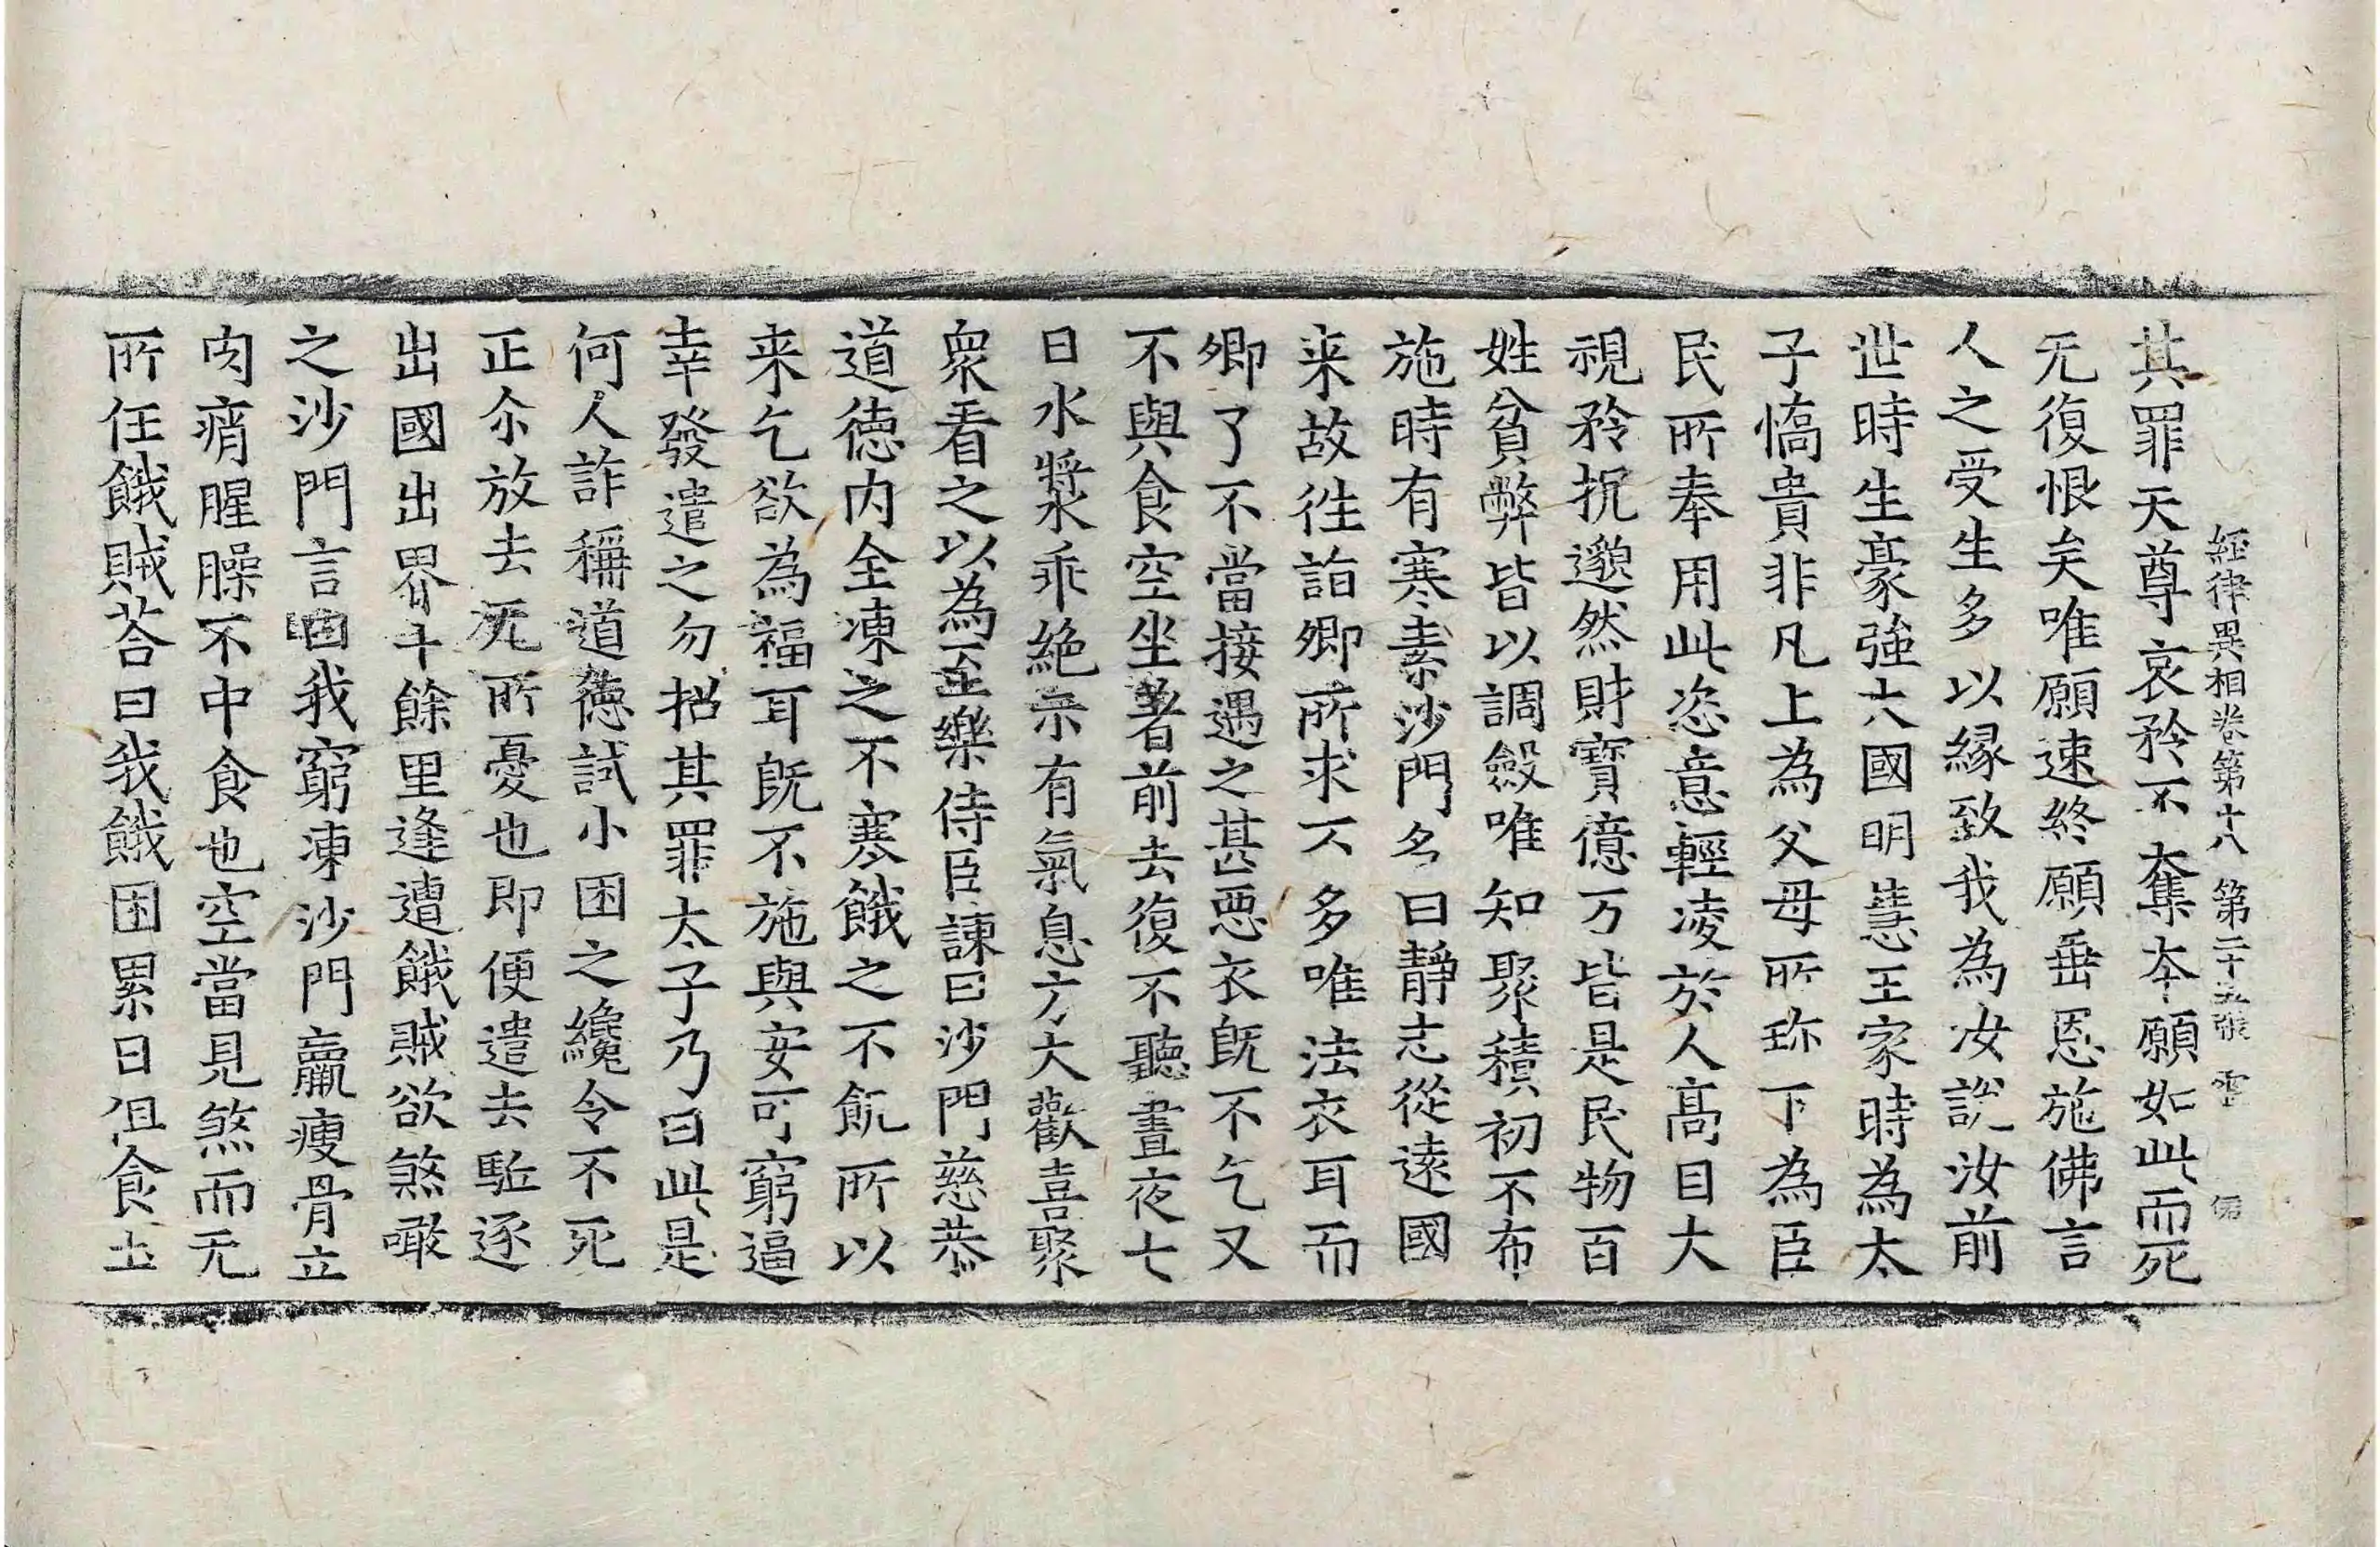 經律異相卷第十八 第二十五張 雲
其罪天尊哀矜不奪本願如此而死
无復恨矣唯願速終願垂恩施佛言
人之受生多以緣致我為汝說汝前
世時生豪強大國明慧王家時為太
子憍貴非凡上為父母所珎下為臣
民所奉用此恣意輕凌於人高目大
視矜抳邈然財寶億万皆是民物百
姓貧弊皆以調斂唯知聚積初不布
施時有寒素沙門名曰靜志從遠國
来故往詣卿所求不多唯法衣耳而
卿了不當接遇之甚惡衣既不乞又
不與食空坐著前去復不聽晝夜七
日水漿乖絶示有氣息方大歡喜聚
衆看之以為至樂侍臣諫曰沙門慈恭
道德内全凍之不寒餓之不飢所以
来乞欲為福耳既不施與安可窮逼
幸發遣之勿招其罪太子乃曰此是
何人詐稱道德試小困之纔令不死
正尒放去无所憂也即便遣去駈逐
出國出界十餘里逢遭餓賊欲煞噉
之沙門言曰我窮凍沙門羸瘦骨立
肉痟腥臊不中食也空當見煞而无
所任餓賊荅曰我餓困累日但食土